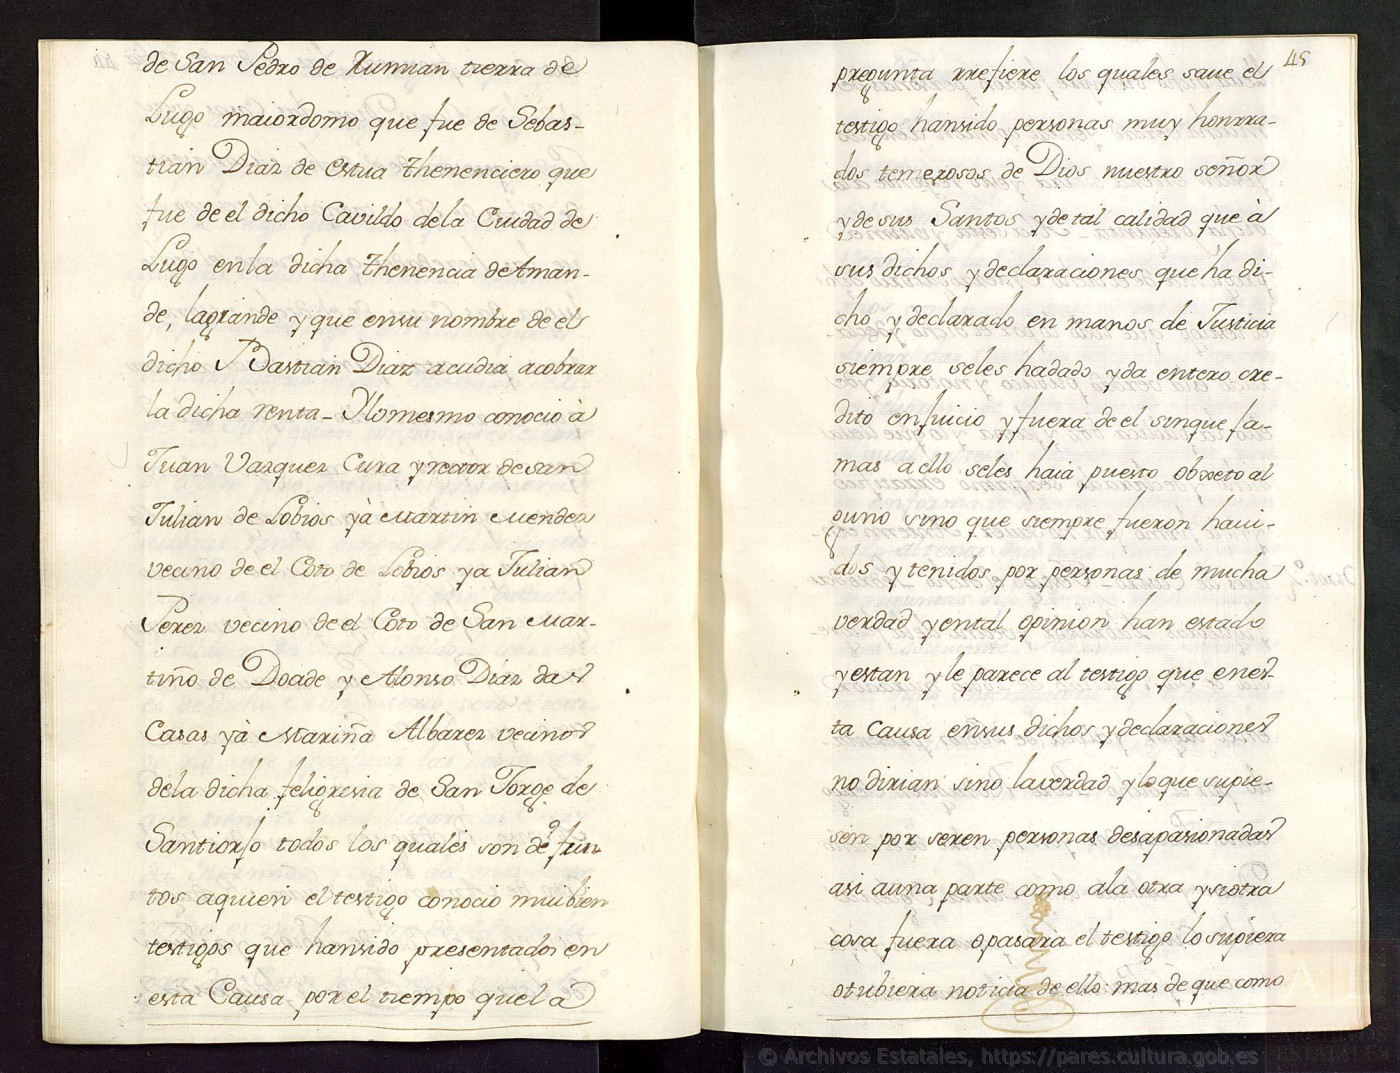 de San Pedro de Xumian tierra de
Lugo maiordomo que fue de Sebas-
tian Diaz de estua thenenciero que
fue de el dicho Cavildo dela Ciudad de
Lugo enla dicha thenencia de Aman-
de, lagrande y que ensu nombre de el
dicho Bastian Diaz acudia acobrar
la dicha renta_ Ylomesmo conocio à
Juan Vazquez Cura y rector de san
Julian de Lobios yà Martin Mendez
vecino de el Coto de Lobios ya Julian
Perez vecino de el Coto de San Mar-
tiño de Doade y Alonso Diaz das
Casas yà Mariña Albarez vecinos
dela dicha feligresia de San Jorge de
Santiorjo todos los quales son de
tos aquien el testigo conocio mui bien
testigos que hansido presentados en
esta Causa por el tiempo quela
45
pregunta rrefiere los quales save el
testigo hansido personas muy honrra-
dos temerosos de Dios nuestro señor
y de sus Santos y de tal calidad que à
sus dichos y declaraciones que ha di-
cho y declarado en manos de Justicia
siempre seles hadado yda entero cre-
dito enjuicio y fuera de el sinque ja-
mas a ello seles haia puesto obxeto al
guno sino que siempre fueron havi-
dos y tenidos por personas de mucha
verdad y ental opinion han estado
y estan y le parece al testigo que enes-
ta Causa ensus dichos y declaraciones
no dirian sino laverdad y lo que supie-
sen por seren personas desapasionadas
asi auna parte como ala otra y si otra
cosa fuera o pasara el testigo lo supiera
o tubiera noticia de ello mas de que como
© Archivos Estatales, https://pares.cultura.gob.es
ARCHIVOS
ESTATALES